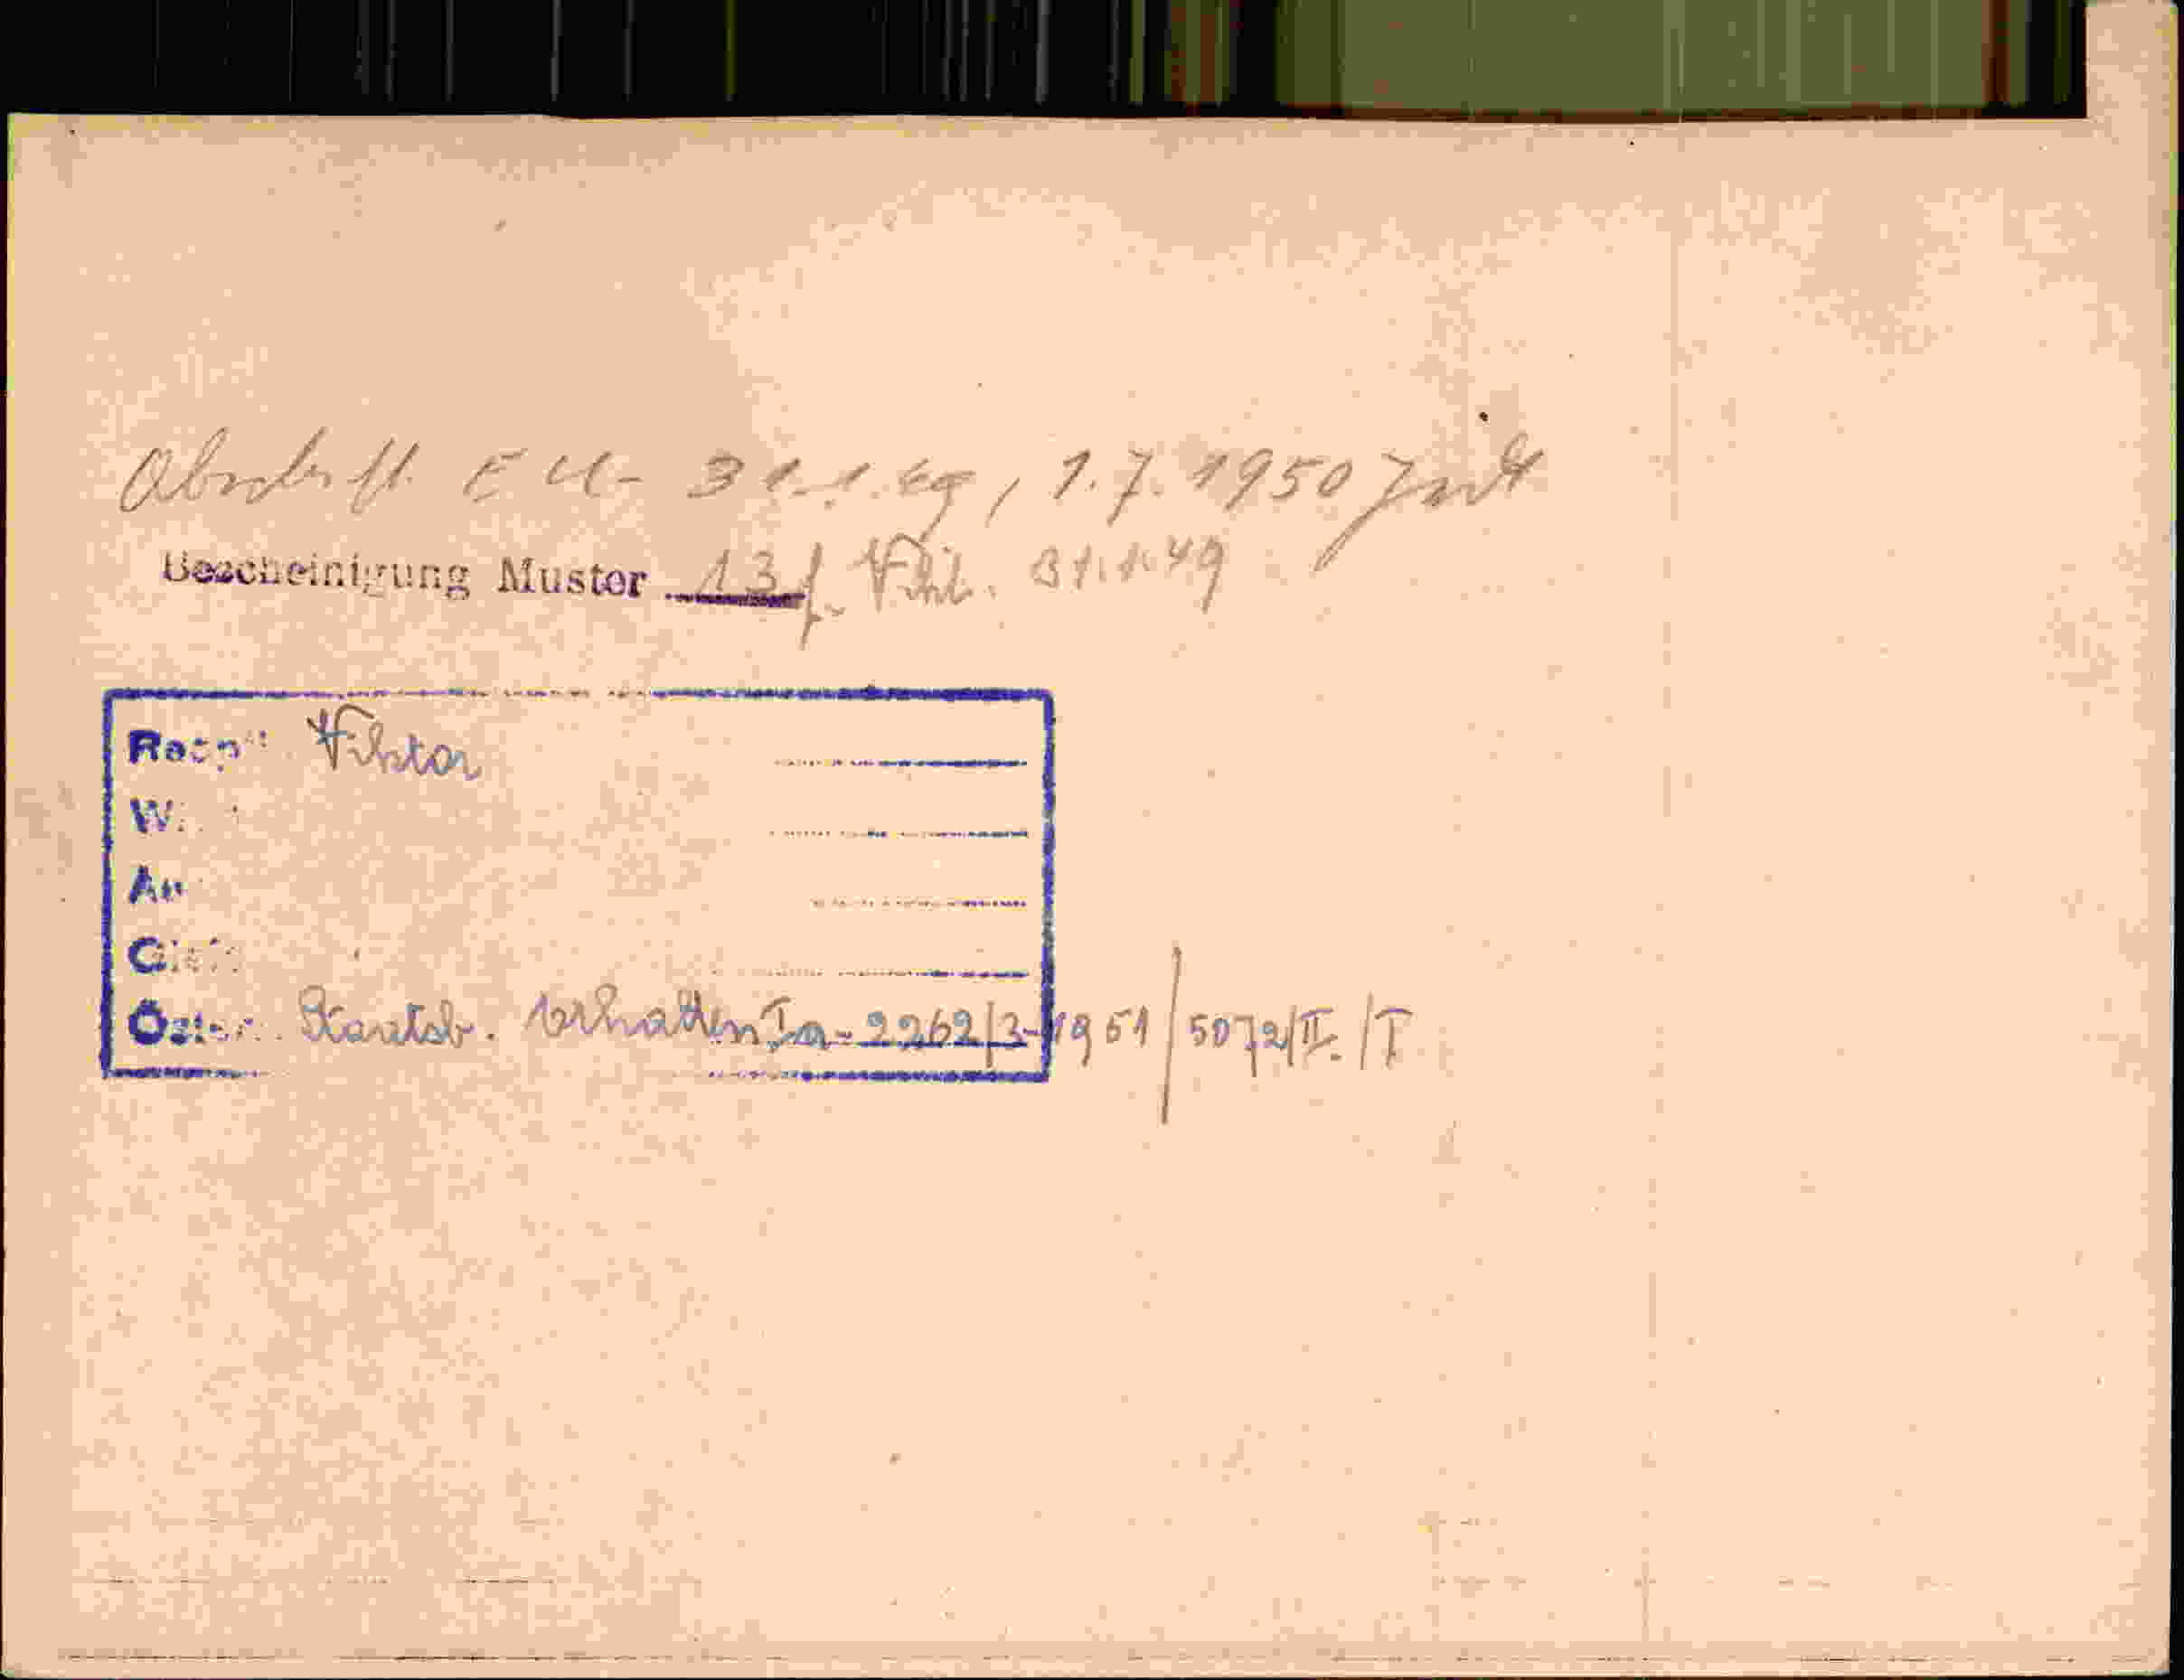 Abschrift. E U- 31.1.49, 1.7.1950
Bescheinigung Muster 13 f. Vikt. 31.1.49
Viktor
W
Au
Österr. Staatsb. erhalten Ia-2262/3-1951/5072/II./I